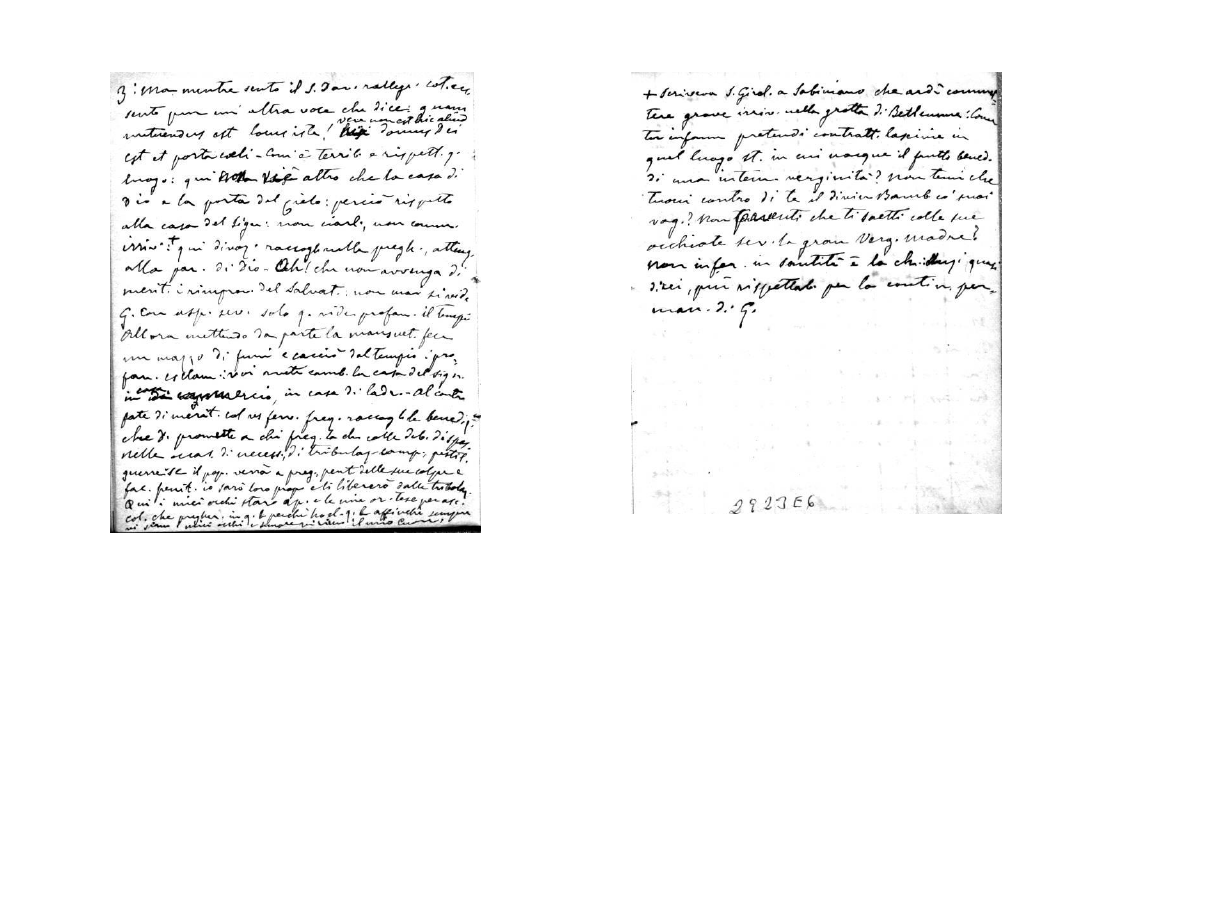 3º Ma mentre sento il S. Dav. rallegr. cot. ecc
sento pur un' altra voce che dice: quam
vere non est hic aliud
metuendus est locus iste! domus Dei
est et porta coeli - Com'è terrib. e rispett. q.
luogo: qui altro che la casa di
Dio e la porta del Cielo: perciò rispetto
alla casa del Sign: non ciarl., non comm.
irriv.: + qui divoz. raccogl. nella pregh., attenz.
alla par. di Dio - Oh! che non avvenga di
merit. i rimprov. del Salvat.: non mai si vide
G. con asp. sev. solo q. vide profan. il tempio
Allora mettendo da parte la mansuet. fece
un mazzo di funi e cacciò dal tempio i pro-
fan. esclam.: voi avete camb. la casa del Sign.
in casa di commercio, in casa di ladr. - Al contr.
fate di merit. col vs ferv. freq. raccogl. le benediz.
che D. promette a chi freq. la ch. colle deb. dispos.
nelle occas. di necess., di tribulaz. pestil.
guerre: se il pop. verrà a preg., pent. delle sue colpe e
fac. penit. io sarò loro prop. e li libererò dalle tribolaz.
Qui i miei occhi star. ap. e le mie or. tese per asc.
col. che pregher. in q. l. perchè ho el. q. l. affinchè sempre
vi siano i miei occhi e il mio Cuore
+ Scriveva S. Girol. a Sabiniano che ardì commet-
tere grave irriv. nella grotta di Betlemme: Come
tu infame pretendi contratt. lascivie in
quel luogo st. in cui nacque il frutto bened.
di una intem. verginità? Non temi che
tuoni contro di te il divin Bamb. co' suoi
vag.? Non paventi che ti saetti colle sue
occhiate sev. la gran Verg. Madre?
Non infer. in santità è la ch. anzi quasi
direi, più rispettab. per la contin. per-
man. di G.
2923E6